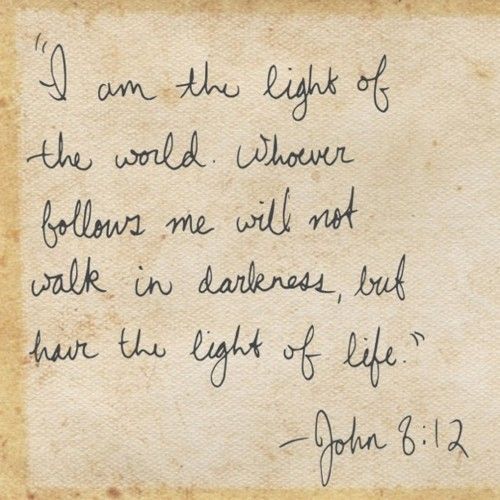 "I am the light of
the world. Whoever
follows me will not
walk in darkness, but
have the light of life."
—John 8:12